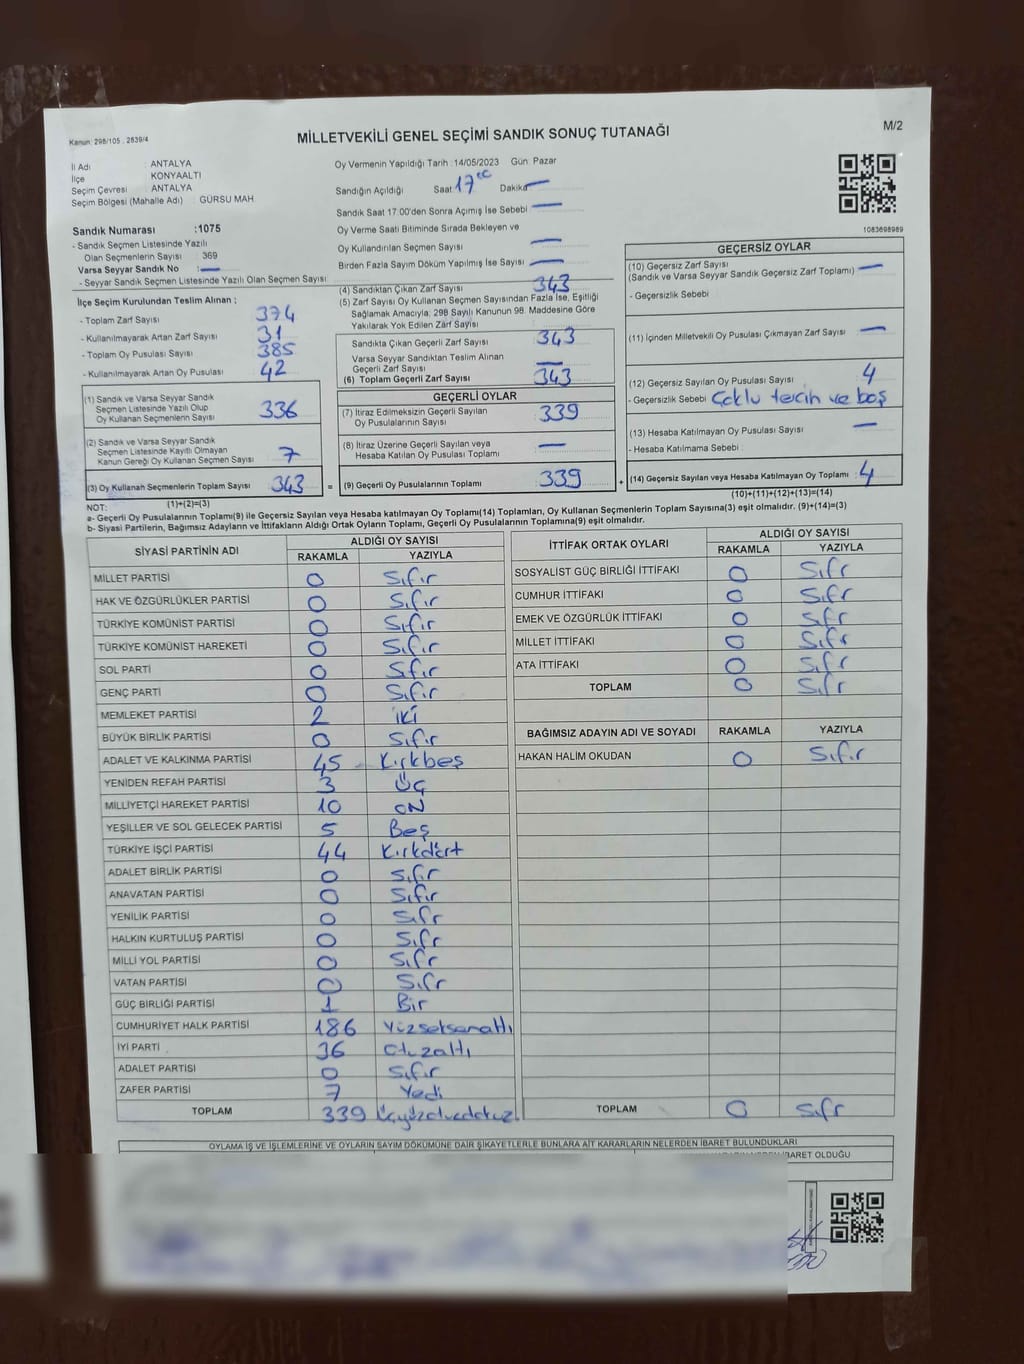 Kanun: 298/105 . 2839/4
MİLLETVEKİLİ GENEL SEÇİMİ SANDIK SONUÇ TUTANAĞI
M/2
İl Adı : ANTALYA
İlçe KONYAALTI
Seçim Çevresi : ANTALYA
Seçim Bölgesi (Mahalle Adı) GÜRSU MAH
Sandık Numarası :1075
- Sandık Seçmen Listesinde Yazılı
Olan Seçmenlerin Sayısı : 369
Varsa Seyyar Sandık No : —
- Seyyar Sandık Seçmen Listesinde Yazılı Olan Seçmen Sayısı
Oy Vermenin Yapıldığı Tarih : 14/05/2023 Gün: Pazar
Sandığın Açıldığı Saat 17 Dakika —
Sandık Saat 17.00'den Sonra Açılmış İse Sebebi —
Oy Verme Saati Bitiminde Sırada Bekleyen ve
Oy Kullandırılan Seçmen Sayısı —
Birden Fazla Sayım Döküm Yapılmış İse Sayısı —
1083698989
İlçe Seçim Kurulundan Teslim Alınan ;
- Toplam Zarf Sayısı 374
- Kullanılmayarak Artan Zarf Sayısı 31
- Toplam Oy Pusulası Sayısı 385
- Kullanılmayarak Artan Oy Pusulası 42
(1) Sandık ve Varsa Seyyar Sandık
Seçmen Listesinde Yazılı Olup
Oy Kullanan Seçmenlerin Sayısı 336
(2) Sandık ve Varsa Seyyar Sandık
Seçmen Listesinde Kayıtlı Olmayan
Kanun Gereği Oy Kullanan Seçmen Sayısı 7
(3) Oy Kullanan Seçmenlerin Toplam Sayısı 343 =
(4) Sandıktan Çıkan Zarf Sayısı 343
(5) Zarf Sayısı Oy Kullanan Seçmen Sayısından Fazla İse, Eşitliği
Sağlamak Amacıyla; 298 Sayılı Kanunun 98. Maddesine Göre
Yakılarak Yok Edilen Zarf Sayısı
Sandıkta Çıkan Geçerli Zarf Sayısı 343
Varsa Seyyar Sandıktan Teslim Alınan
Geçerli Zarf Sayısı —
(6) Toplam Geçerli Zarf Sayısı 343
GEÇERLİ OYLAR
(7) İtiraz Edilmeksizin Geçerli Sayılan
Oy Pusulalarının Sayısı 339
(8) İtiraz Üzerine Geçerli Sayılan veya
Hesaba Katılan Oy Pusulası Toplamı —
(9) Geçerli Oy Pusulalarının Toplamı 339 +
GEÇERSİZ OYLAR
(10) Geçersiz Zarf Sayısı
(Sandık ve Varsa Seyyar Sandık Geçersiz Zarf Toplamı) —
- Geçersizlik Sebebi
(11) İçinden Milletvekili Oy Pusulası Çıkmayan Zarf Sayısı —
(12) Geçersiz Sayılan Oy Pusulası Sayısı 4
- Geçersizlik Sebebi Çoklu tercih ve boş
(13) Hesaba Katılmayan Oy Pusulası Sayısı —
- Hesaba Katılmama Sebebi
(14) Geçersiz Sayılan veya Hesaba Katılmayan Oy Toplamı 4
(1)+(2)=(3)
(10)+(11)+(12)+(13)=(14)
NOT:
a- Geçerli Oy Pusulalarının Toplamı(9) ile Geçersiz Sayılan veya Hesaba katılmayan Oy Toplamı(14) Toplamları, Oy Kullanan Seçmenlerin Toplam Sayısına(3) eşit olmalıdır. (9)+(14)=(3)
b- Siyasi Partilerin, Bağımsız Adayların ve İttifakların Aldığı Ortak Oyların Toplamı, Geçerli Oy Pusulalarının Toplamına(9) eşit olmalıdır.
SİYASİ PARTİNİN ADI ALDIĞI OY SAYISI
RAKAMLA YAZIYLA
MİLLET PARTİSİ 0 Sıfır
HAK VE ÖZGÜRLÜKLER PARTİSİ 0 Sıfır
TÜRKİYE KOMÜNİST PARTİSİ 0 Sıfır
TÜRKİYE KOMÜNİST HAREKETİ 0 Sıfır
SOL PARTİ 0 Sıfır
GENÇ PARTİ 0 Sıfır
MEMLEKET PARTİSİ 2 iki
BÜYÜK BİRLİK PARTİSİ 0 Sıfır
ADALET VE KALKINMA PARTİSİ 45 Kırkbeş
YENİDEN REFAH PARTİSİ 3 Üç
MİLLİYETÇİ HAREKET PARTİSİ 10 ON
YEŞİLLER VE SOL GELECEK PARTİSİ 5 Beş
TÜRKİYE İŞÇİ PARTİSİ 44 Kırkdört
ADALET BİRLİK PARTİSİ 0 Sıfır
ANAVATAN PARTİSİ 0 Sıfır
YENİLİK PARTİSİ 0 Sıfır
HALKIN KURTULUŞ PARTİSİ 0 Sıfır
MİLLİ YOL PARTİSİ 0 Sıfır
VATAN PARTİSİ 0 Sıfır
GÜÇ BİRLİĞİ PARTİSİ 1 Bir
CUMHURİYET HALK PARTİSİ 186 Yüzseksenaltı
İYİ PARTİ 36 Otuzaltı
ADALET PARTİSİ 0 Sıfır
ZAFER PARTİSİ 7 Yedi
TOPLAM 339 Üçyüzotuzdokuz
İTTİFAK ORTAK OYLARI ALDIĞI OY SAYISI
RAKAMLA YAZIYLA
SOSYALİST GÜÇ BİRLİĞİ İTTİFAKI 0 Sıfır
CUMHUR İTTİFAKI 0 Sıfır
EMEK VE ÖZGÜRLÜK İTTİFAKI 0 Sıfır
MİLLET İTTİFAKI 0 Sıfır
ATA İTTİFAKI 0 Sıfır
TOPLAM 0 Sıfır
BAĞIMSIZ ADAYIN ADI VE SOYADI RAKAMLA YAZIYLA
HAKAN HALİM OKUDAN 0 Sıfır
TOPLAM 0 Sıfır
OYLAMA İŞ VE İŞLEMLERİNE VE OYLARIN SAYIM DÖKÜMÜNE DAİR ŞİKAYETLERLE BUNLARA AİT KARARLARIN NELERDEN İBARET BULUNDUKLARI
İBARET OLDUĞU